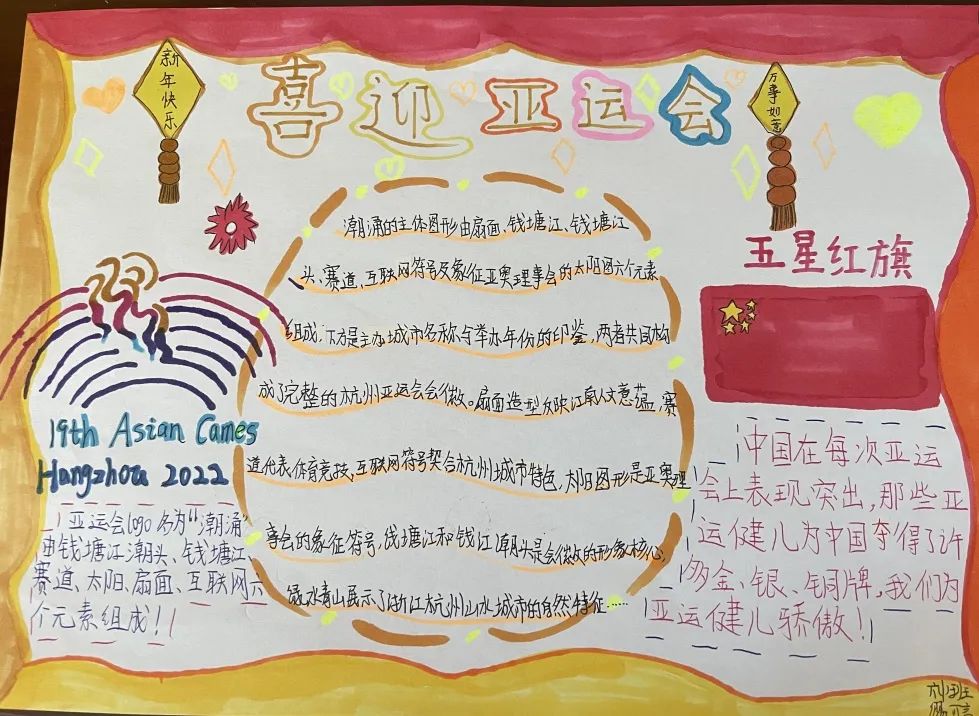 喜迎亚运会
新年快乐
万事如意
潮涌的主体图形由扇面、钱塘江、钱塘江
头、赛道、互联网符号及象征亚奥理事会的太阳图六个元素
组成，下方是主办城市名称与举办年份的印鉴，两者共同构
成了完整的杭州亚运会会徽。扇面造型反映江南人文意蕴，赛
道代表体育竞技，互联网符号契合杭州城市特色，太阳图形是亚奥理
事会的象征符号，钱塘江和钱江潮头是会徽的形象核心，
绿水青山展示了浙江杭州山水城市的自然特征……
19th Asian Games
Hangzhou 2022
亚运会logo名为“潮涌”
由钱塘江潮头、钱塘江、
赛道、太阳、扇面、互联网六
个元素组成！
五星红旗
中国在每次亚运
会上表现突出，那些亚
运健儿为中国夺得了许
多金、银、铜牌，我们为
亚运健儿骄傲！